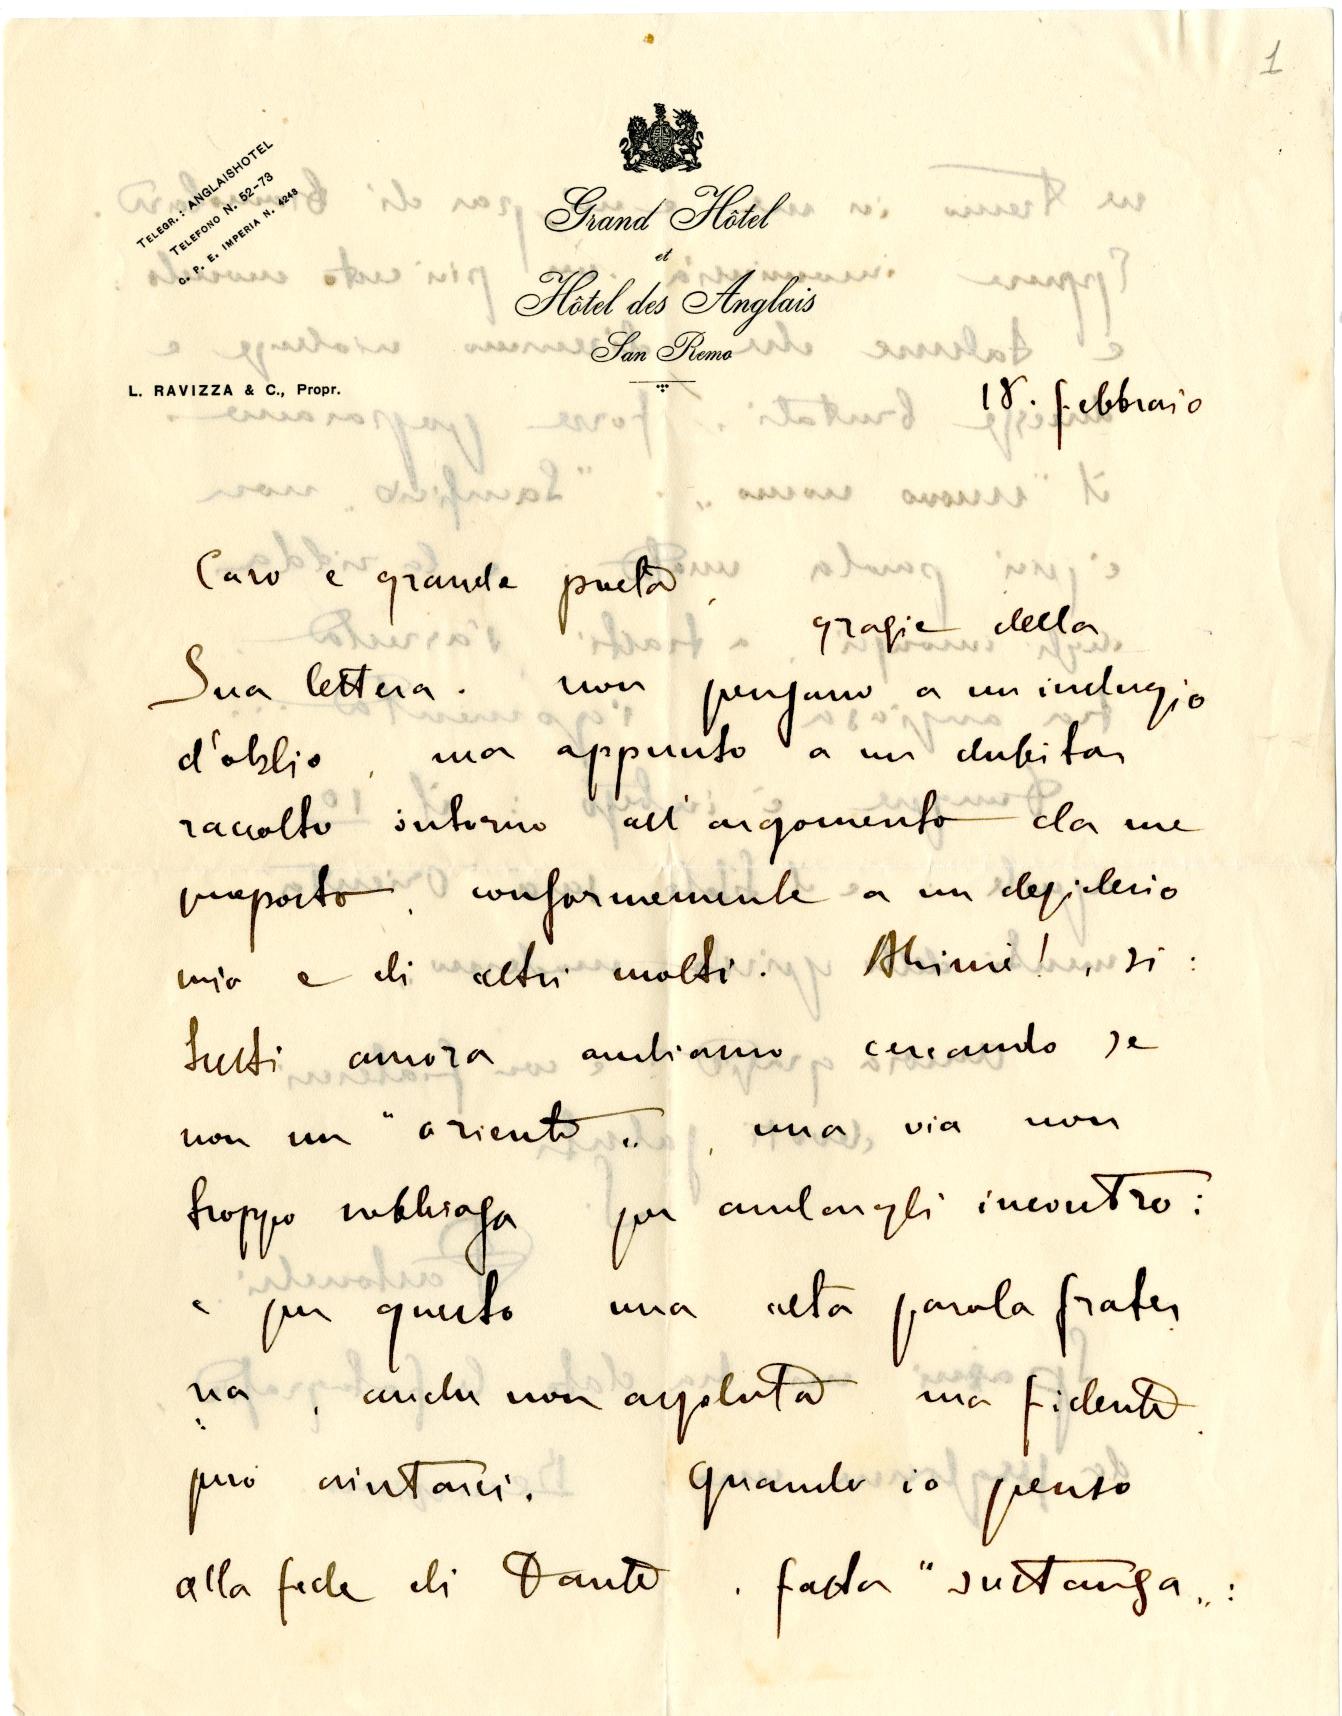 1
TELEGR.: ANGLAISHOTEL
TELEFONO N. 52-73
C. P. E. IMPERIA N. 4248
Grand Hôtel
et
Hôtel des Anglais
San Remo
L. RAVIZZA & C., Propr.
18. febbraio
Caro e grande poeta,
grazie della
Sua lettera. non pensavo a un indugio
d'oblio, ma appunto a un dubitar
raccolto intorno all'argomento da me
proposto, conformemente a un desiderio
mio e di altri molti. Ahimè!, si:
tutti ancora andiamo cercando se
non un "oriente", una via non
troppo per andargli incontro:
e per questo una alta parola frater
na, anche non assoluta ma fidente,
può aiutarci. Quando io penso
alla fede di Dante, fatta "sustanza":